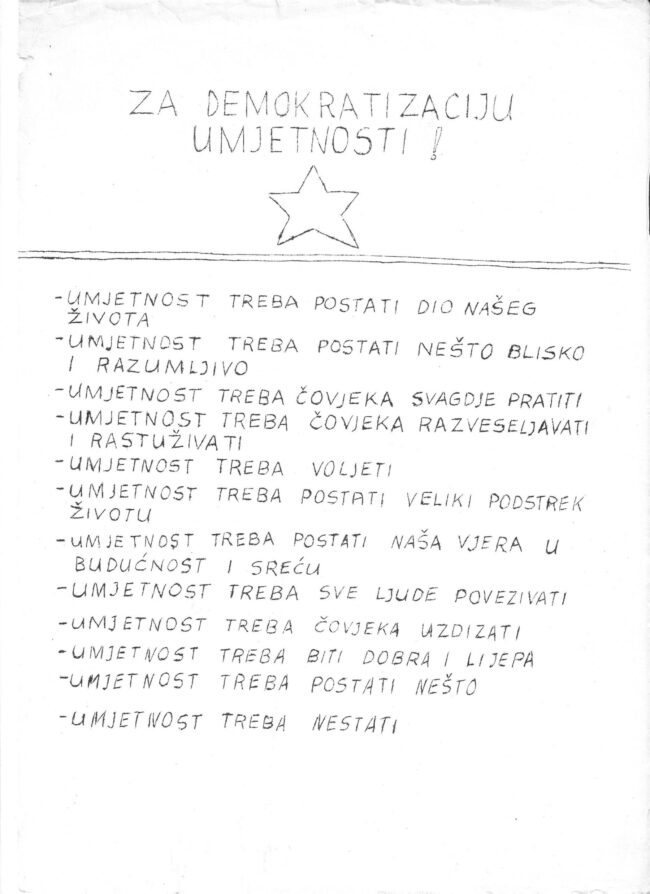 ZA DEMOKRATIZACIJU
UMJETNOSTI!
-UMJETNOST TREBA POSTATI DIO NAŠEG
ŽIVOTA
-UMJETNOST TREBA POSTATI NEŠTO BLISKO
I RAZUMLJIVO
-UMJETNOST TREBA ČOVJEKA SVAGDJE PRATITI
-UMJETNOST TREBA ČOVJEKA RAZVESELJAVATI
I RASTUŽIVATI
-UMJETNOST TREBA VOLJETI
-UMJETNOST TREBA POSTATI VELIKI PODSTREK
ŽIVOTU
-UMJETNOST TREBA POSTATI NAŠA VJERA U
BUDUĆNOST I SREĆU
-UMJETNOST TREBA SVE LJUDE POVEZIVATI
-UMJETNOST TREBA ČOVJEKA UZDIZATI
-UMJETNOST TREBA BITI DOBRA I LIJEPA
-UMJETNOST TREBA POSTATI NEŠTO
-UMJETNOST TREBA NESTATI